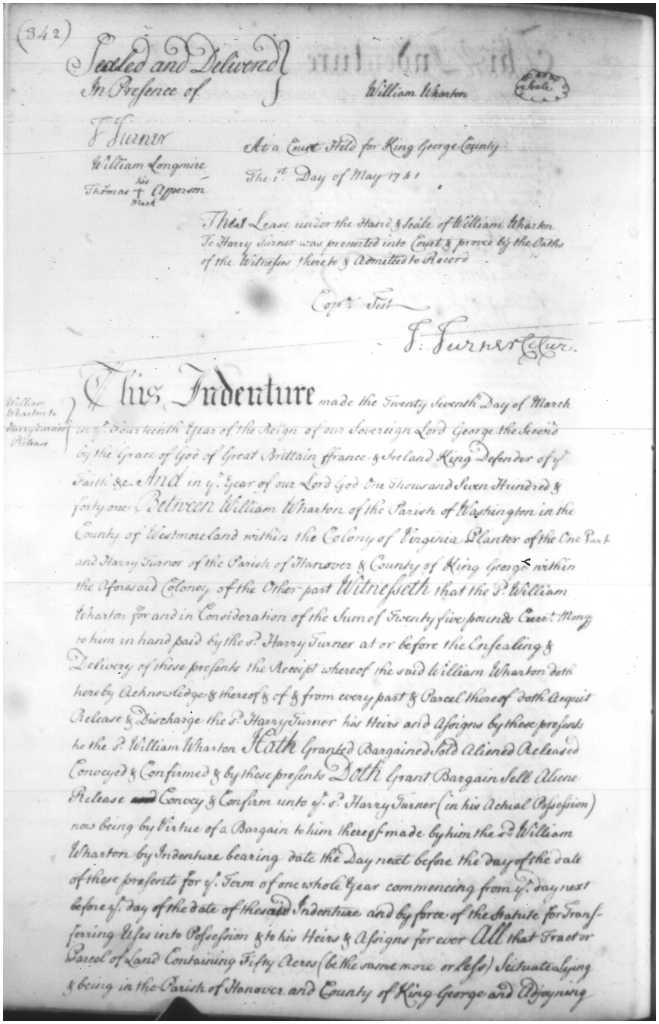 (342)
Sealed and Delivered }
In Presence of
William Wharton
Seale
T Turner
William Longmire
his
Thomas + Apperson
Mark
At a Court Held for King George County
The 1st Day of May 1741
This Lease under the Hand & Seale of William Wharton
To Harry Turner was presented into Court & proved by the Oaths
of the Witnesses thereto & Admitted to Record
Copa Test
T: Turner Cl Cur.
William
Wharton to
Harry Turner
Release
This Indenture made the Twenty Seventh Day of March
in ye. Fourteenth Year of the Reign of our Sovereign Lord George the Second
by the Grace of God of Great Brittain ffrance & Ireland King Defender of ye
Faith &c And in ye. Year of our Lord God One Thousand Seven Hundred &
forty one Between William Wharton of the Parish of Washington in the
County of Westmoreland within the Colony of Virginia Planter of the One Part
and Harry Turner of the Parish of Hanover & County of King George within
the Aforesaid Coloney of the Other part Witnesseth that the sd. William
Wharton for and in Consideration of the Sum of Twenty five pounds Curr't. Mony
to him in hand paid by the sd. Harry Turner at or before the Ensealing &
Delivery of these presents the Receipt whereof the said William Wharton doth
hereby Acknowledge & thereof & of & from every part & Parcel thereof doth Acquit
Release & Discharge the sd. Harry Turner his Heirs and Assigns by these presents
he the sd. William Wharton Hath Granted Bargained Sold Aliened Released
Conveyed & Confirmed & by these presents Doth Grant Bargain Sell Aliene
Release and Convey & Confirm unto ye. sd. Harry Turner (in his Actual Possession)
now being by Virtue of a Bargain to him thereof made by him the sd. William
Wharton by Indenture bearing date the Day next before the day of the date
of these presents for ye. Term of one whole Year commencing from ye. day next
before ye. day of the date of the said Indenture and by force of the Statute for Trans-
ferring Uses into Possession & to his Heirs & Assigns for ever All that Tract or
Parcel of Land Containing Fifty Acres (be the same more or less) Scituate Lying
& being in the Parish of Hanover and County of King George and Adjoyning